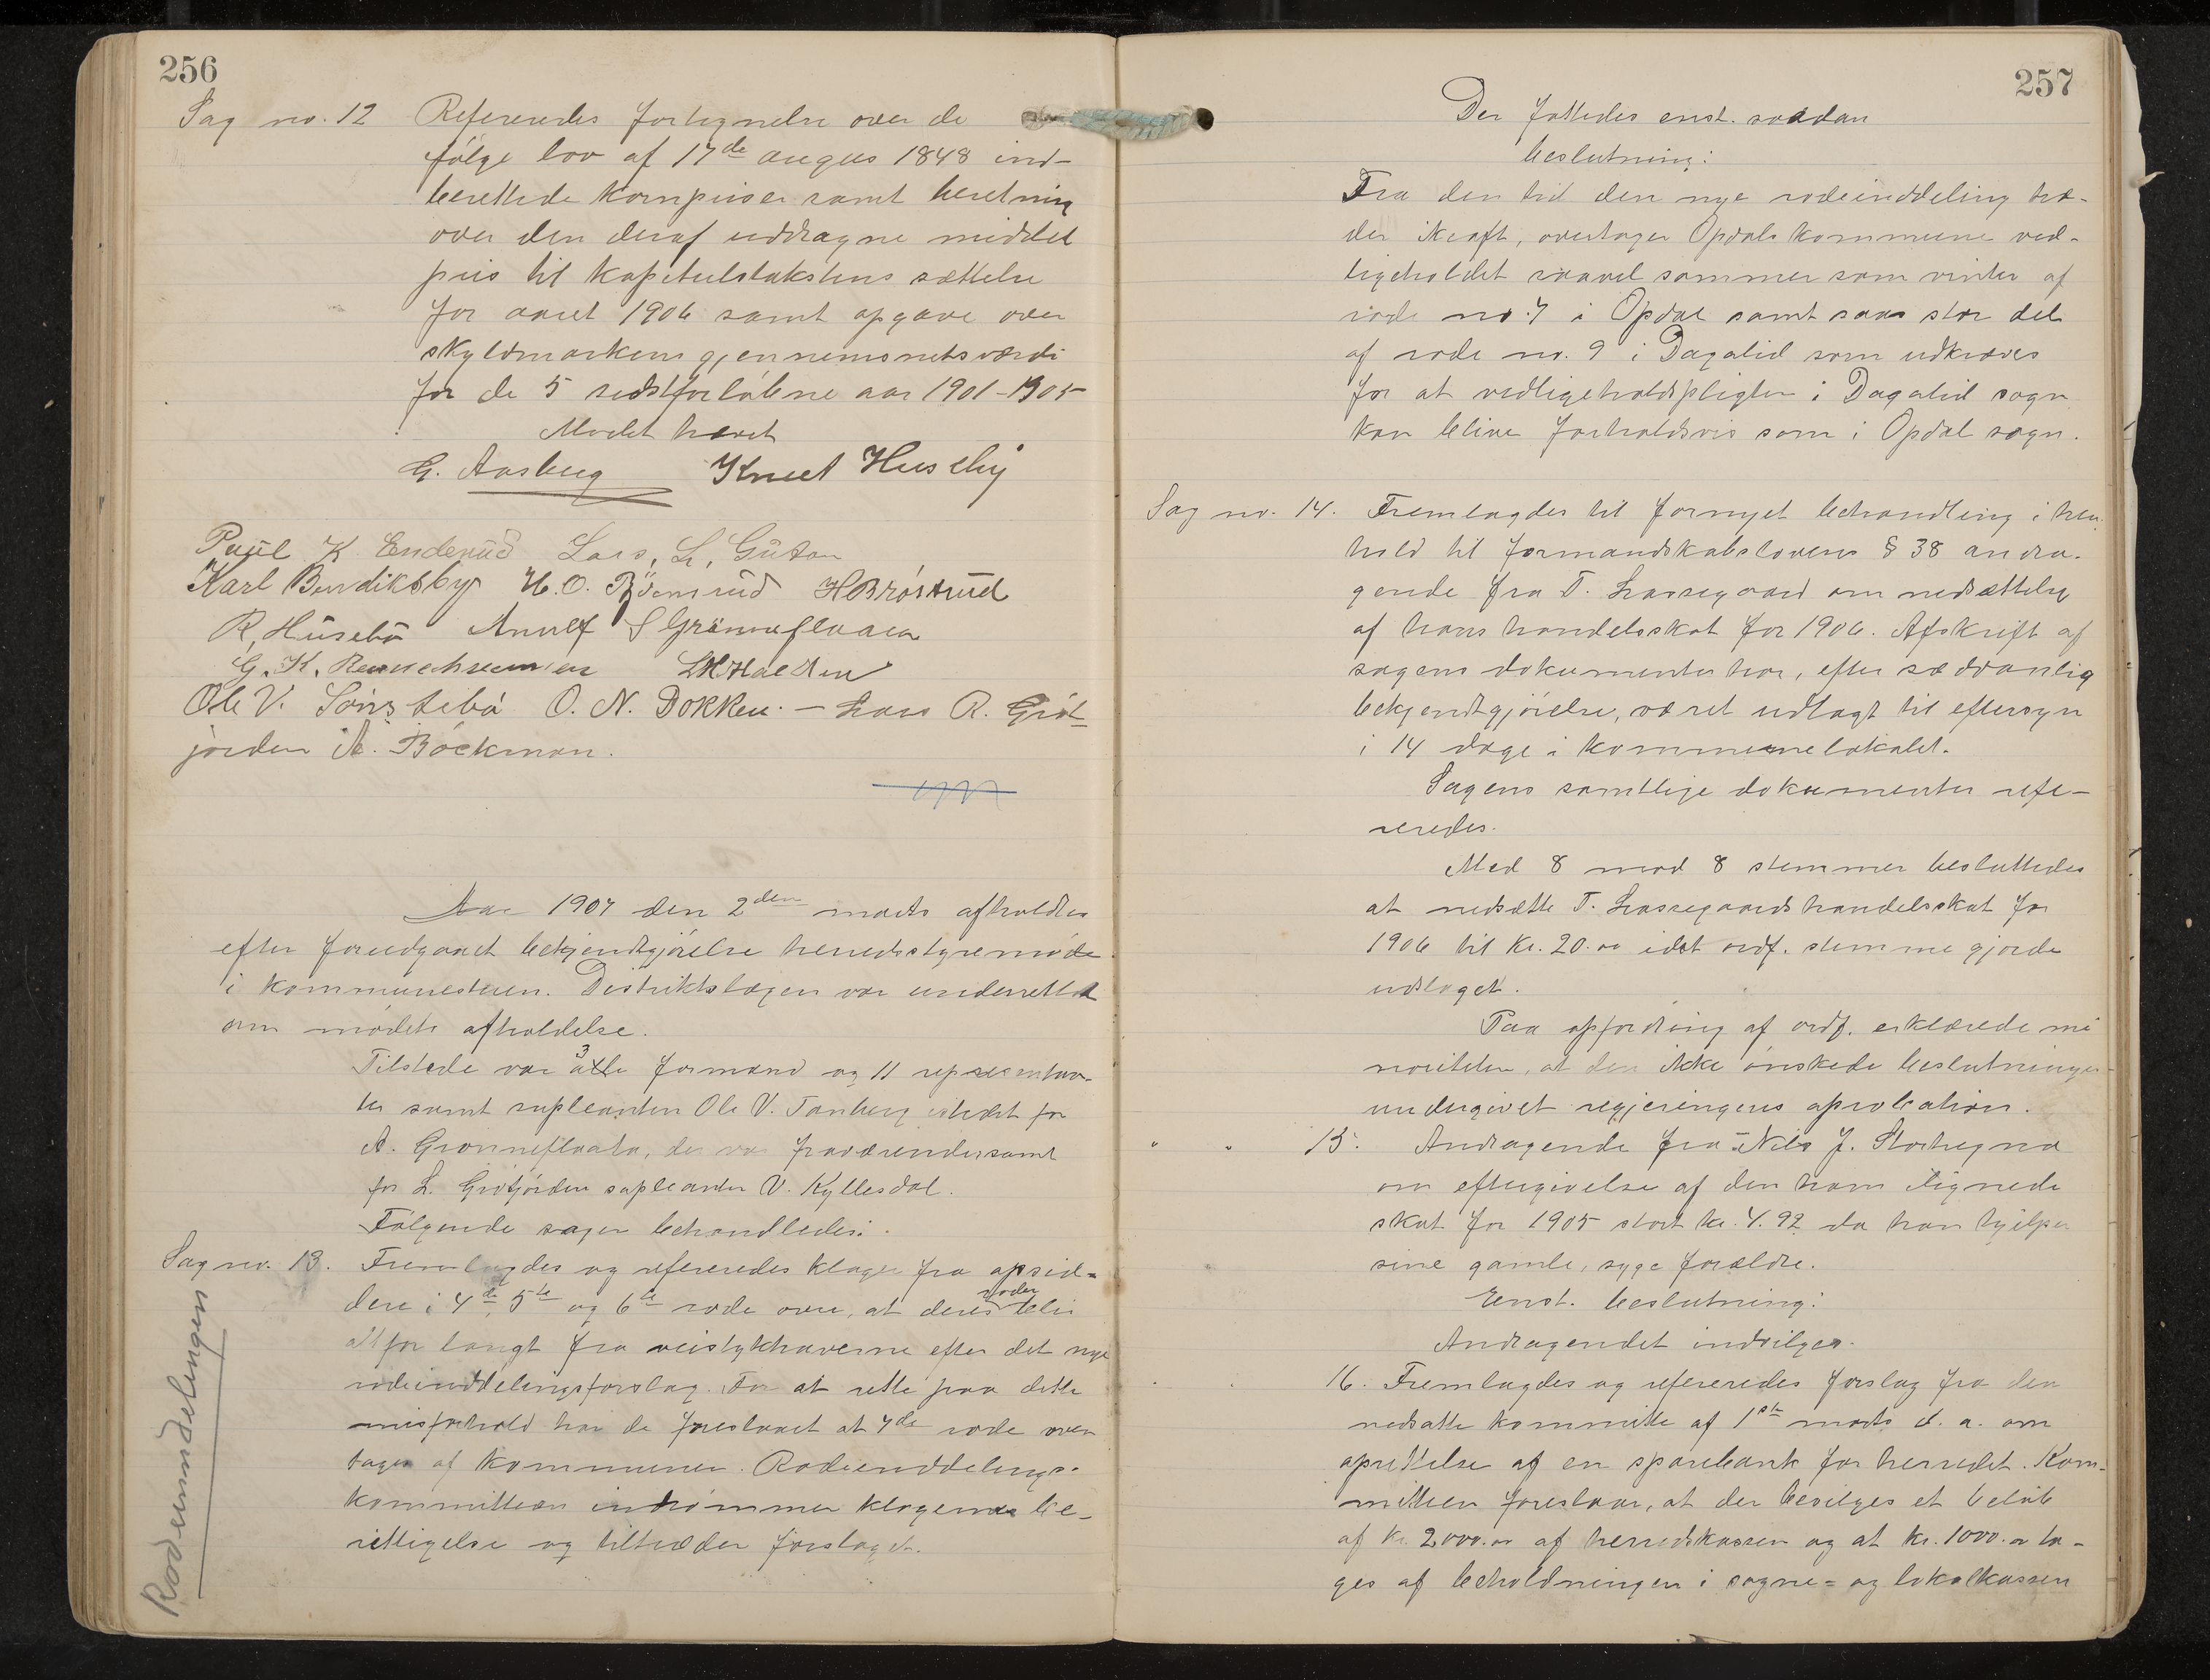 256
Sag no. 12 Refereredes fortegnelse over de
følge lov af 17de augus 1848 ind-
berettede kornpriser samt beretning
over den deraf uddragne middel
pris til kapitelstakstens sættelse
for aaret 1906 samt opgave over
skyldmarkens gjennemsnitsværdi
for de 5 sidstforløbne aar 1901-1905
Mødet hævet
G. Aasberg Knut Huseby
Paul K Enderud Lars, L,
Karl Bendiksby H. O. Bjömrud H Brøstrud
R, Husebø S Grönneflaata
G. K.
Ole V. Sönstebö O. N. Dokken. — Lars R. Grøt-
jorden A. Bøckman.
Aar 1907 den 2den marts afholdtes
efter foredgaaet bekjendtgjørelse herredsstyremøde
i kommunestuen. Distriktslægen var underrettet
om mødets afholdelse.
Tilstede var 3 formænd og 11 repræsentan-
ter samt supleanten Ole V. Tanberg istedet for
A. Grønneflaata, der var fraværende samt
for L. Grøtjorden supleanten V. Kyllesdal.
Følgende sager behandledes:
Sag no. 13. Fremlagdes og refereredes klager fra opsid-
dere i 4de, 5te og 6te rode over, at deres roder blir
altfor langt fra veistykkerne efter det nye
rodeinddelingsforslag. For at rette paa dette
misforhold har de foreslaaet at 7de rode over
tages af kommunen. Rodeinddelings-
kommitteen indrømmer klagernes be-
rettigelse og tiltræder forslaget.
Rodeinndelingen
257
Der fattedes enst. saadan
beslutning:
Fra den tid den nye rodeinddeling træ-
der ikraft, overtager Opdals kommune ved-
ligeholdet saavel sommer som vinter af
rode no. 7 i Opdal samt saa stor del
af rode no. 9 i Dagalid som udkræves
for at vedligeholdspligten i Dagalid sogn
kan blive forholdsvis som i Opdal sogn.
Sag no. 14. Fremlagdes til fornyet behandling i hen
hold til formandskabslovens § 38 andra-
gende fra T. Lassegaard om nedsættelse
af hans handelsskat for 1906. Afskrift af
sagens dokumenter har, efter sædvanlig
bekjendtgjørelse, været udlagt til eftersyn
i 14 dage i kommunelokalet.
Sagens samtlige dokumenter refe-
reredes.
Med 8 mod 8 stemmer besluttedes
at nedsætte T. Lassegaards handelsskat for
1906 til kr. 20.00 idet ordf. stemme gjorde
udslaget.
Paa opfordring af ordf. erklærede mi
noriteten, at den ikke ønskede beslutningen
undergivet regjeringens aprobation.
" " 15. Andragende fra Nils J. Stortegna
om eftergivelse af den ham ilignede
skat for 1905 stort kr. 4.92 da han hjelper
sine gamle, syge forældre.
Enst. beslutning:
Andragendet indvilges.
16. Fremlagdes og refereredes forslag fra den
nedsatte kommitte af 1ste marts d. a. om
oprettelse af en sparebank for herredet. Kom-
mitteen foreslaar, at der bevilges et beløb
af kr. 2000.00 af herredskassen og at kr. 1000.00 ta-
ges af beholdningen i sogne= og lokalkassen